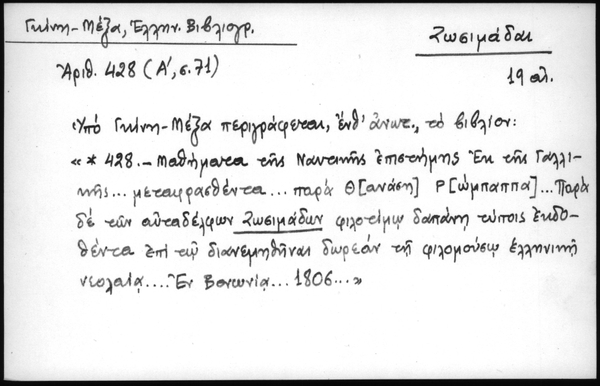 Γκίνη-Μέξα, Ἑλλην. Βιβλιογρ.
Ζωσιμάδαι
Ἀριθ. 428 (Α', σ. 71)
19 αἰ.
Ὑπό Γκίνη-Μέξα περιγράφεται, ἔνθ' ἀνωτ., τό βιβλίον:
«* 428.- Μαθήματα τῆς Ναυτικῆς ἐπιστήμης Ἐκ τῆς Γαλλι-
κῆς... μεταφρασθέντα... παρά Θ[ανάση] Ρ[ώμπαππα]... Παρά
δέ τῶν αὐταδέλφων Ζωσιμάδων φιλοτίμῳ δαπάνῃ τύποις ἐκδο-
θέντα ἐπί τῷ διανεμηθῆναι δωρεάν τῇ φιλομούσῳ ἑλληνικῇ
νεολαίᾳ.... Ἐν Βονωνίᾳ... 1806...»